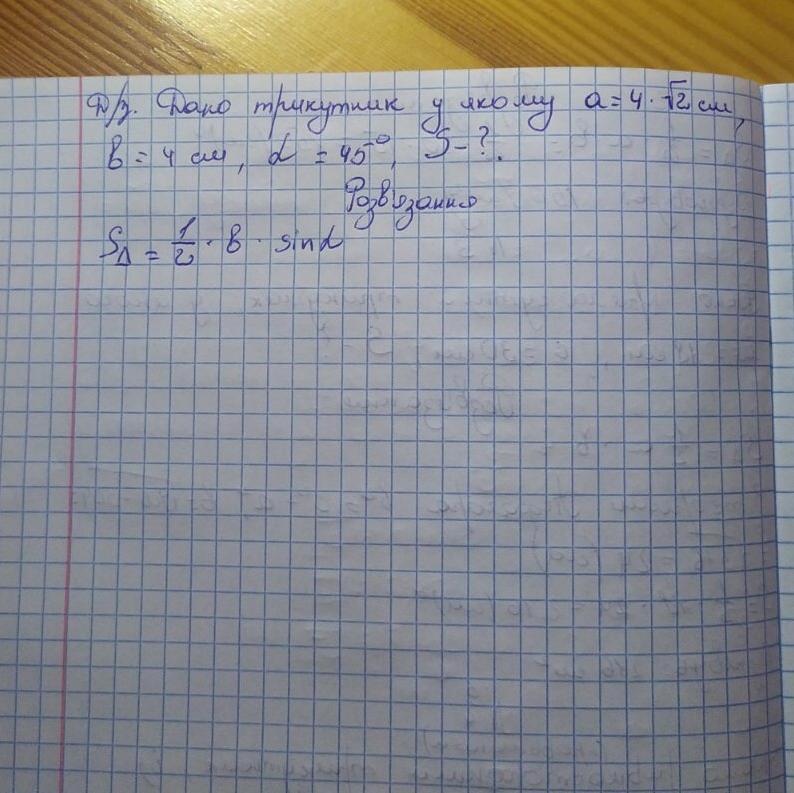 Д/з. Дано трикутник у якому a = 4 · √2 см,
b = 4 см, α = 45°, S - ?.
Розв'язання
S△ = 1/2 · b · sinα